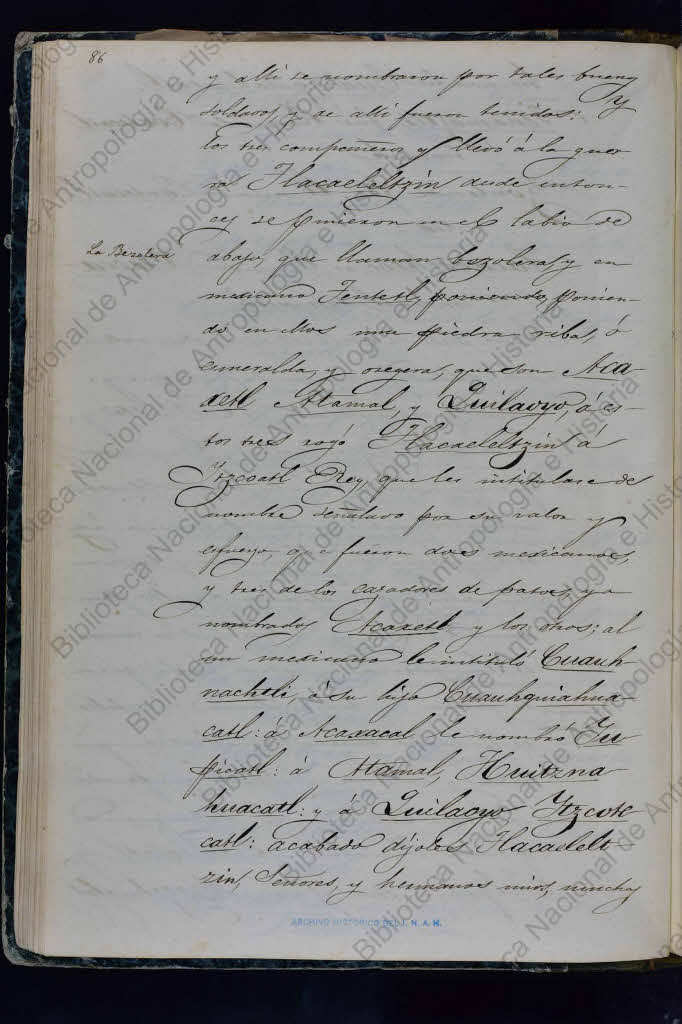 86
y allí se nombraron por tales buenos
soldados, y de allí fueron temidos: y
los tres compañeros y llevó á la guer-
ra Tlacaeleltzin desde enton-
ces se pusieron en el labio de
La Bezolera
abajo, que llaman bezoleras, y en
mexicano Tentetl, poniendo, ponien-
do en ellos una piedra rica, ó
esmeralda, y oregera, que son Aca-
xetl Atamal, y Quilaoyo, á es-
tos tres rogó Tlacaeleltzin á
Ytzcoatl Rey, que les intitulase de
nombre señalado por su valor y
esfuerzo, que fueron dos mexicanos,
y tres de los cazadores de patos, ya
nombrados Acaxetl y los otros; al
un mexicano le intituló Cuauh-
nacheli, á su hijo Cuauhquiahua-
catl: á Acaxacal le nombró
á Atamal, Huitzna-
huacatl: y á Quilaoyo Ytzcot-
catl: acabado díjoles Tlacaelelt-
zin, Señores, y hermanos mios, muchos
ARCHIVO HISTÓRICO DEL I. N. A. H.
Biblioteca Nacional de Antropología e Historia